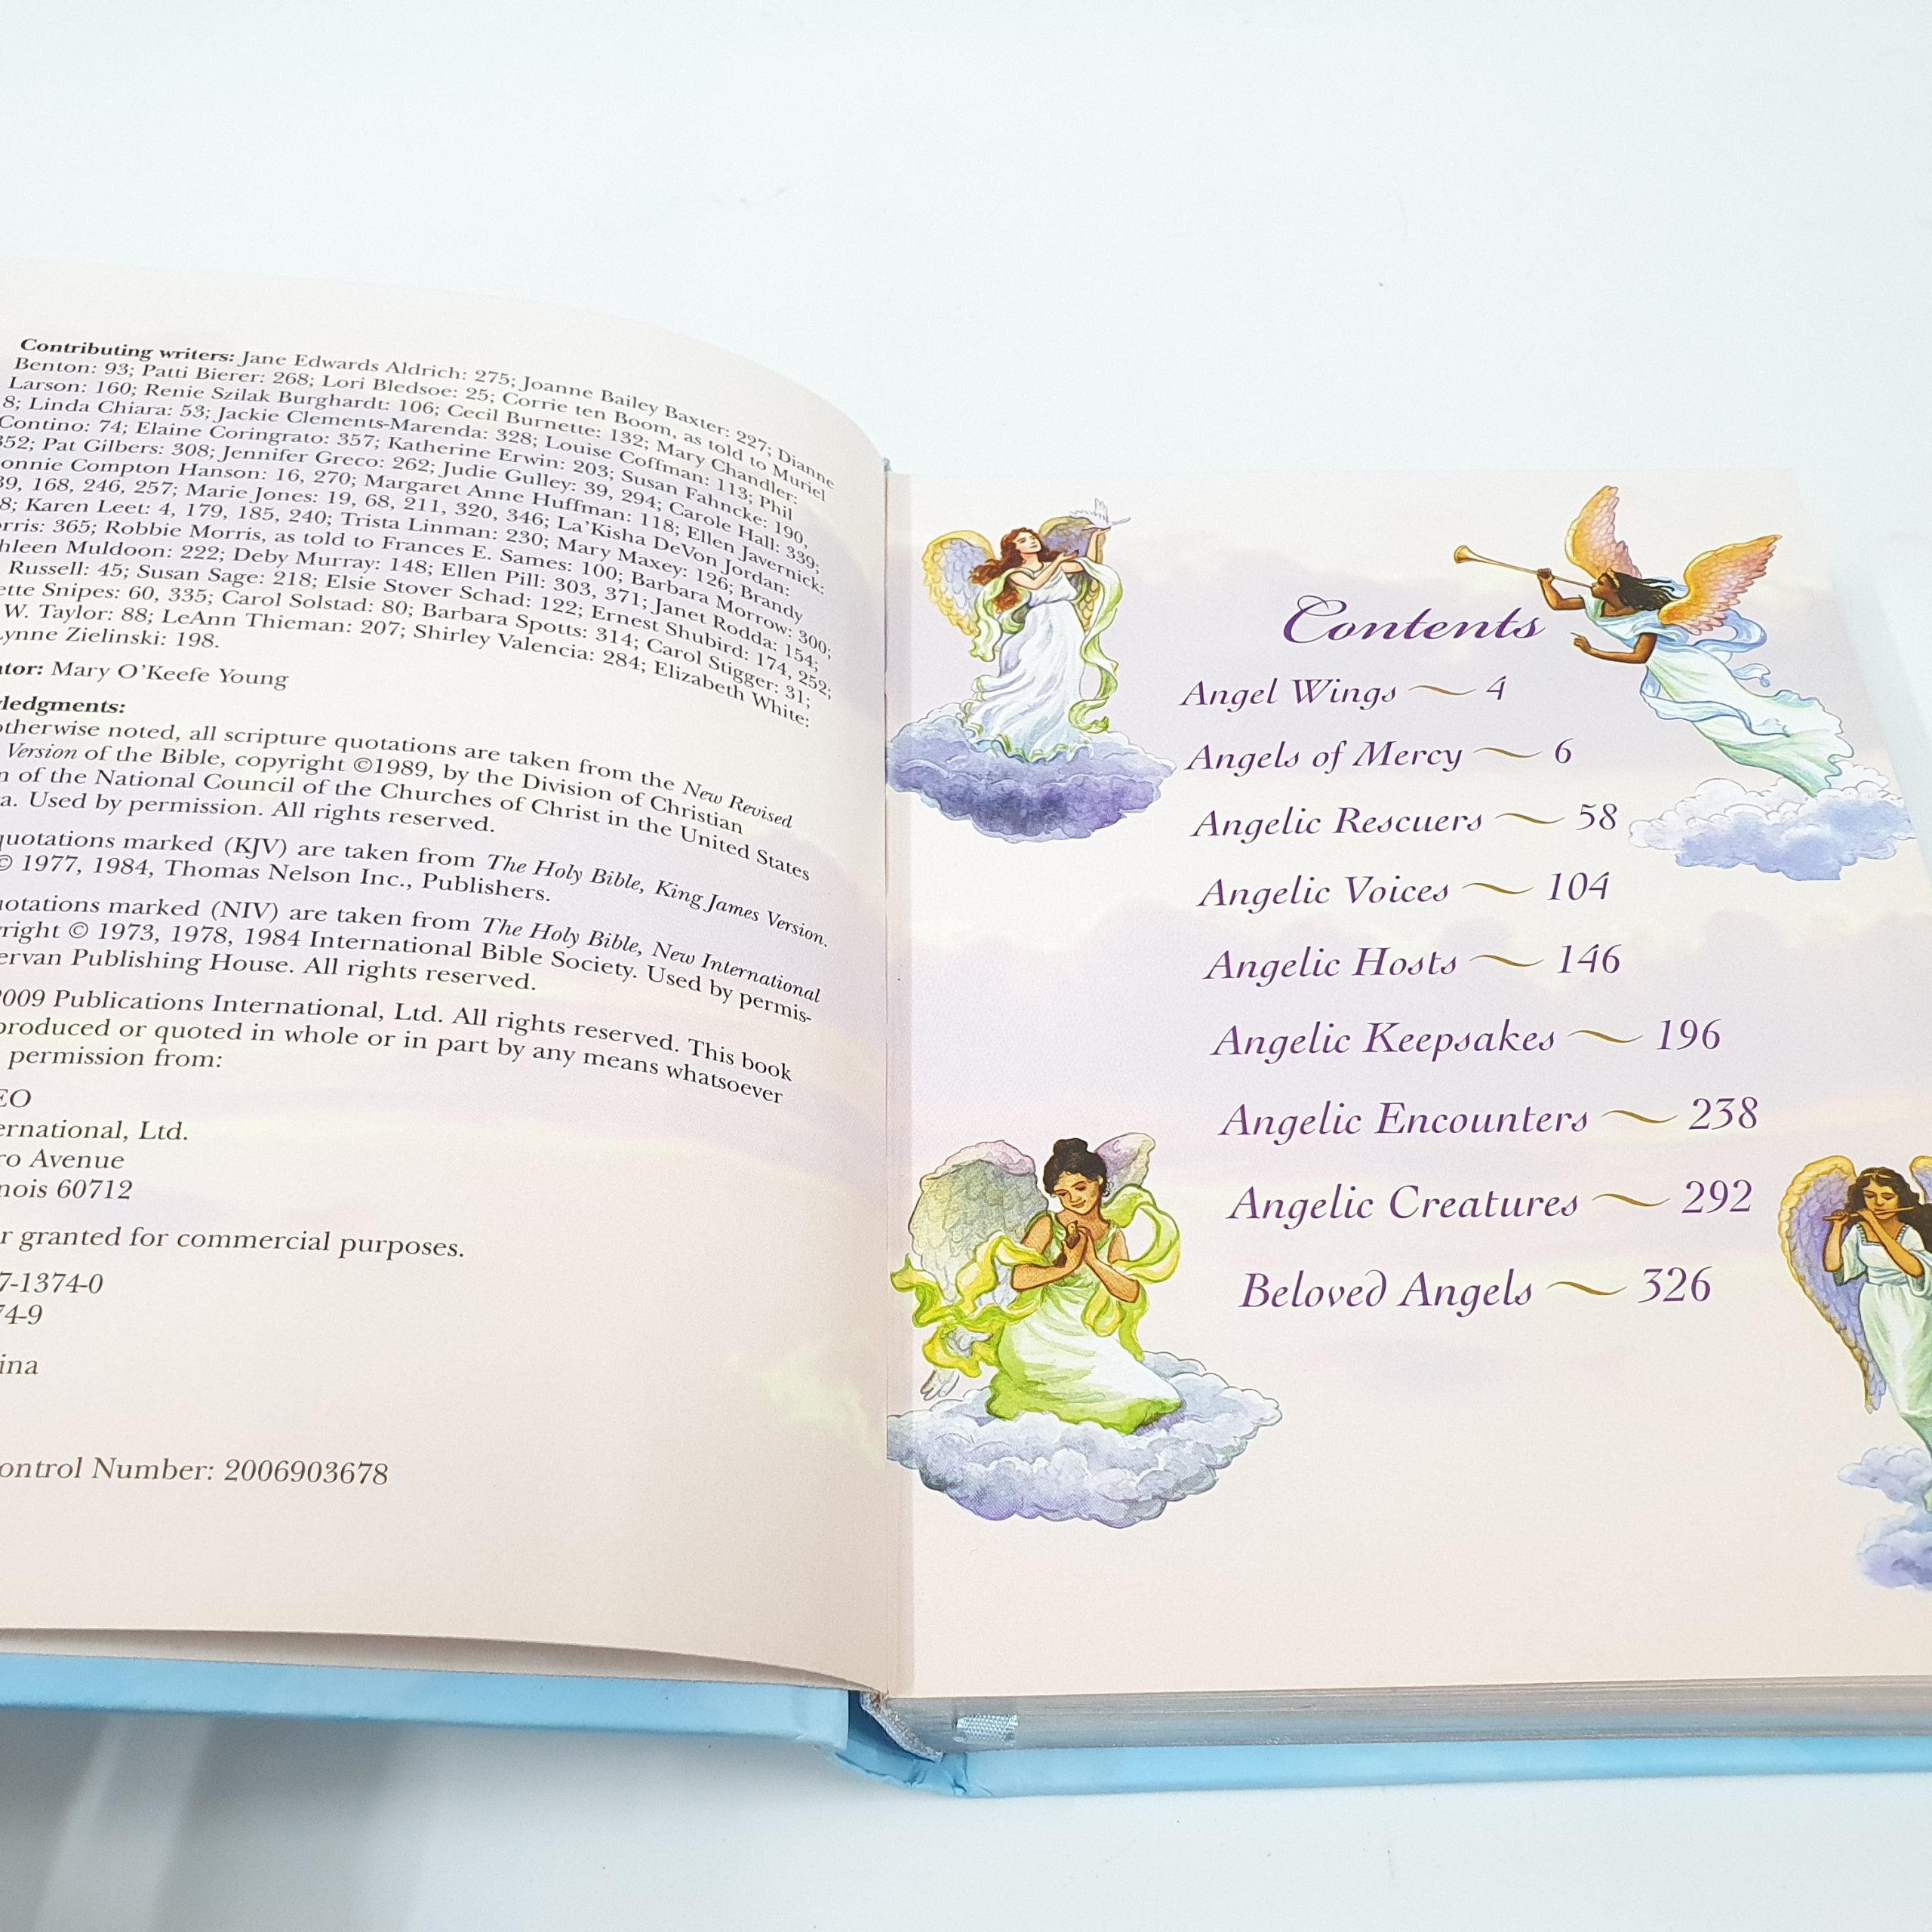 Contributing writers: Jane Edwards Aldrich: 275; Joanne Bailey Baxter: 227; Dianne
Benton: 93; Patti Bierer: 268; Lori Bledsoe: 25; Corrie ten Boom, as told to Muriel
Larson: 160; Renie Szilak Burghardt: 106; Cecil Burnette: 132; Mary Chandler:
8; Linda Chiara: 53; Jackie Clements-Marenda: 328; Louise Coffman: 113; Phil
Contino: 74; Elaine Coringrato: 357; Katherine Erwin: 203; Susan Fahncke: 190,
352; Pat Gilbers: 308; Jennifer Greco: 262; Judie Gulley: 39, 294; Carole Hall: 339;
onnie Compton Hanson: 16, 270; Margaret Anne Huffman: 118; Ellen Javernick:
39, 168, 246, 257; Marie Jones: 19, 68, 211, 320, 346; La'Kisha DeVon Jordan:
8; Karen Leet: 4, 179, 185, 240; Trista Linman: 230; Mary Maxey: 126; Brandy
orris: 365; Robbie Morris, as told to Frances E. Sames: 100; Barbara Morrow: 300;
hleen Muldoon: 222; Deby Murray: 148; Ellen Pill: 303, 371; Janet Rodda: 154;
Russell: 45; Susan Sage: 218; Elsie Stover Schad: 122; Ernest Shubird: 174, 252;
ette Snipes: 60, 335; Carol Solstad: 80; Barbara Spotts: 314; Carol Stigger: 31;
W. Taylor: 88; LeAnn Thieman: 207; Shirley Valencia: 284; Elizabeth White:
Lynne Zielinski: 198.
ator: Mary O'Keefe Young
ledgments:
otherwise noted, all scripture quotations are taken from the New Revised
Version of the Bible, copyright ©1989, by the Division of Christian
n of the National Council of the Churches of Christ in the United States
a. Used by permission. All rights reserved.
quotations marked (KJV) are taken from The Holy Bible, King James Version.
© 1977, 1984, Thomas Nelson Inc., Publishers.
uotations marked (NIV) are taken from The Holy Bible, New International
right © 1973, 1978, 1984 International Bible Society. Used by permis-
ervan Publishing House. All rights reserved.
2009 Publications International, Ltd. All rights reserved. This book
produced or quoted in whole or in part by any means whatsoever
permission from:
EO
ernational, Ltd.
ro Avenue
nois 60712
r granted for commercial purposes.
7-1374-0
74-9
ina
ontrol Number: 2006903678
Contents
Angel Wings ~ 4
Angels of Mercy ~ 6
Angelic Rescuers ~ 58
Angelic Voices ~ 104
Angelic Hosts ~ 146
Angelic Keepsakes ~ 196
Angelic Encounters ~ 238
Angelic Creatures ~ 292
Beloved Angels ~ 326